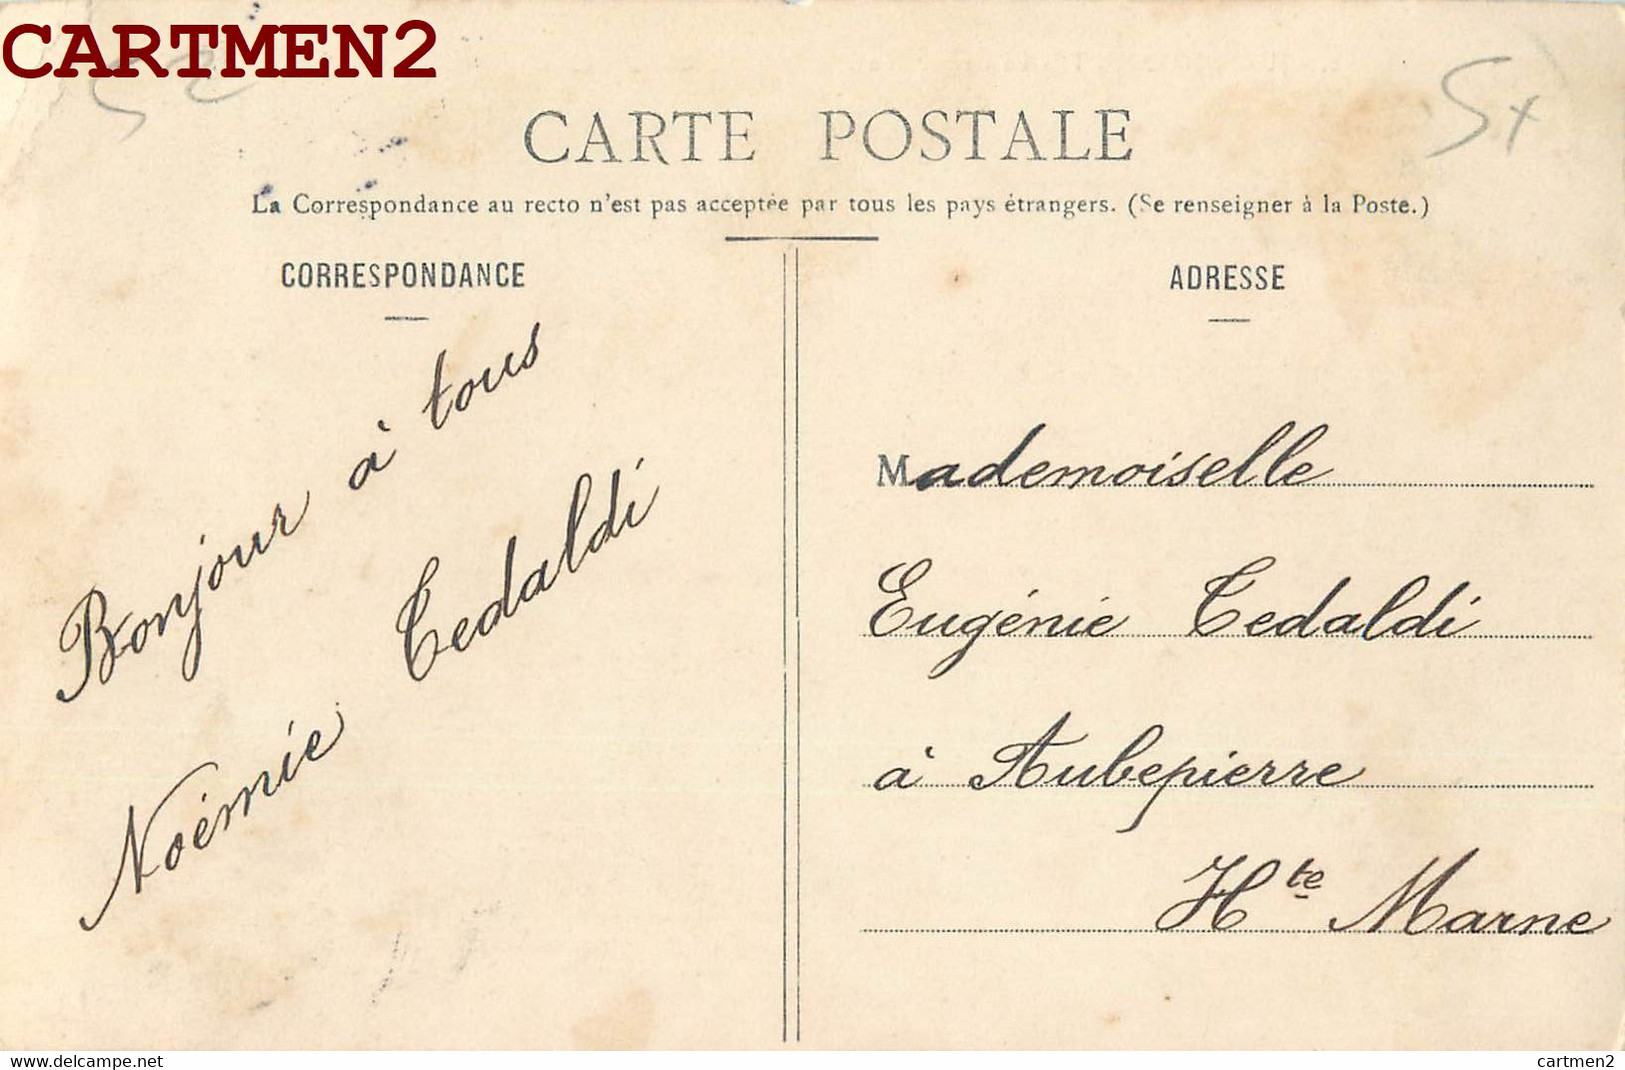 CARTMEN2
5x
CARTE POSTALE
La Correspondance au recto n'est pas acceptée par tous les pays étrangers. (Se renseigner à la Poste.)
CORRESPONDANCE
Bonjour à tous
Noémie Tedaldi
ADRESSE
Mademoiselle
Eugénie Tedaldi
à Aubepierre
Hte Marne
www.delcampe.net
cartmen2